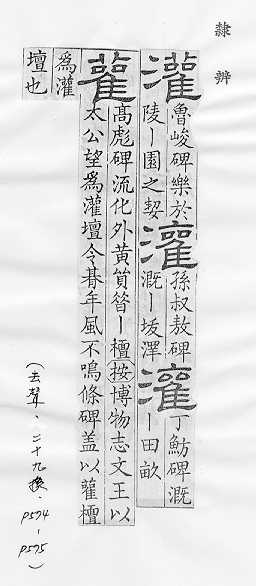 隸辨
灌魯峻碑樂於灌孫叔敖碑灌丁魴碑溉
陵丨園之契溉丨坂澤丨田畝
雚高彪碑流化外黃䈰笤丨檀(按)博物志文王以
太公望為灌壇令朞年風不鳴條碑盖以雚檀
為灌
壇也
(去聲、二十九換.P574-P575)